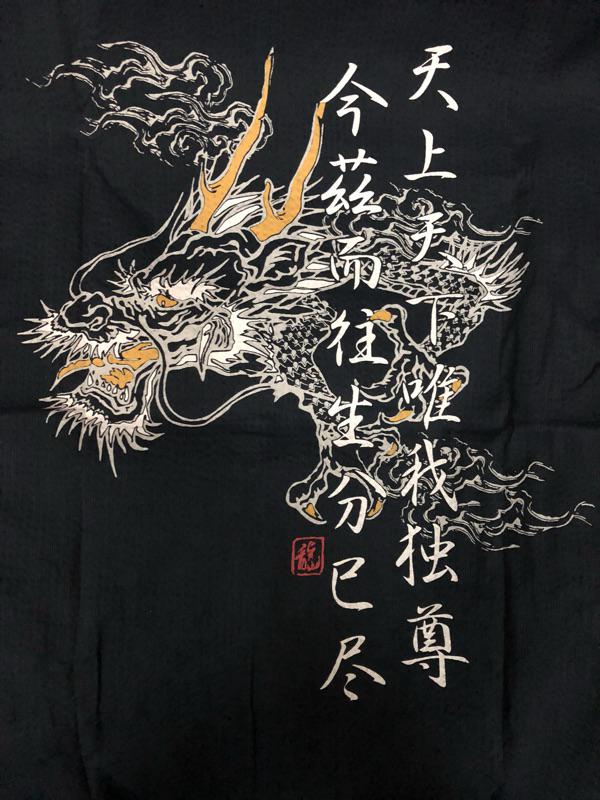 天上天下唯我独尊
今茲而往生分已尽
龍